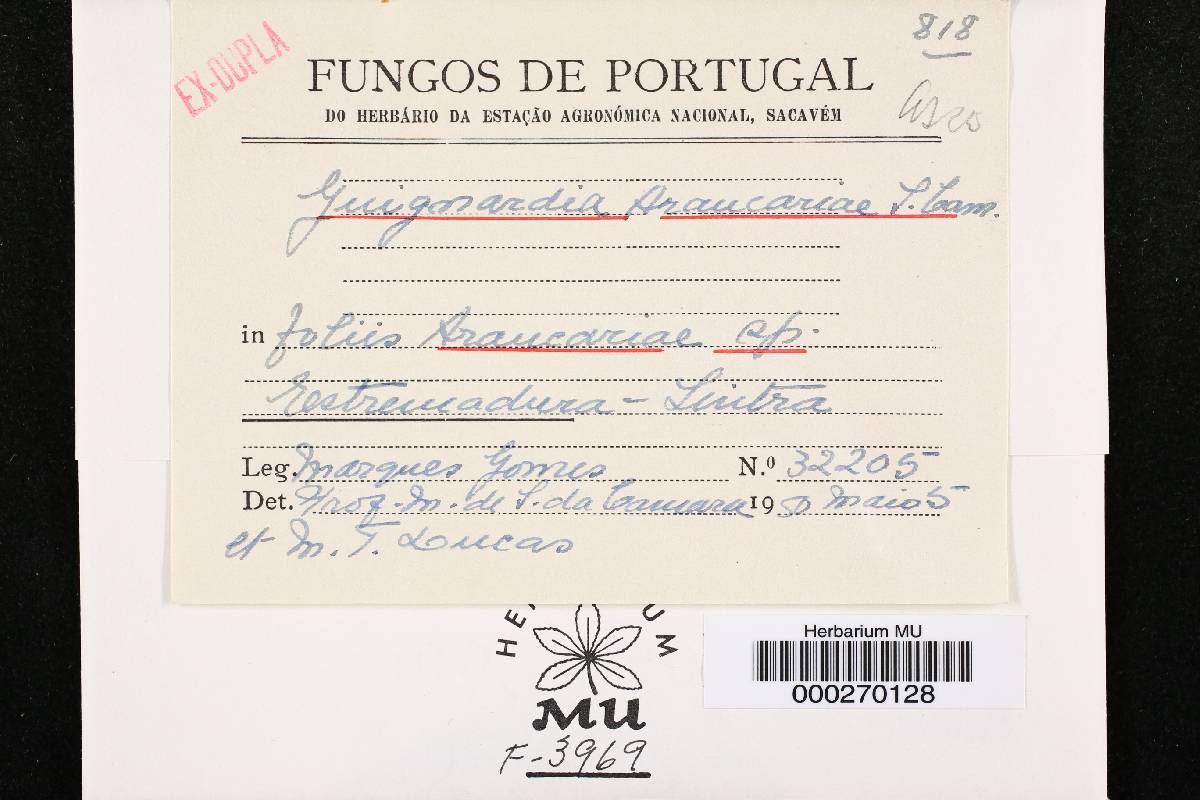 EX-DUPLA
818
FUNGOS DE PORTUGAL
DO HERBÁRIO DA ESTAÇÃO AGRONÓMICA NACIONAL, SACAVÉM
Asco
Guignardia Araucariae S. Cam.
in foliis Araucariae sp.
Estremadura - Sintra
Leg. Marques Gomes N.º 32205
Det. Prof. M. de S. da Camara 1950 Maio 5
et M. T. Lucas
MU
F-3969
Herbarium MU
000270128